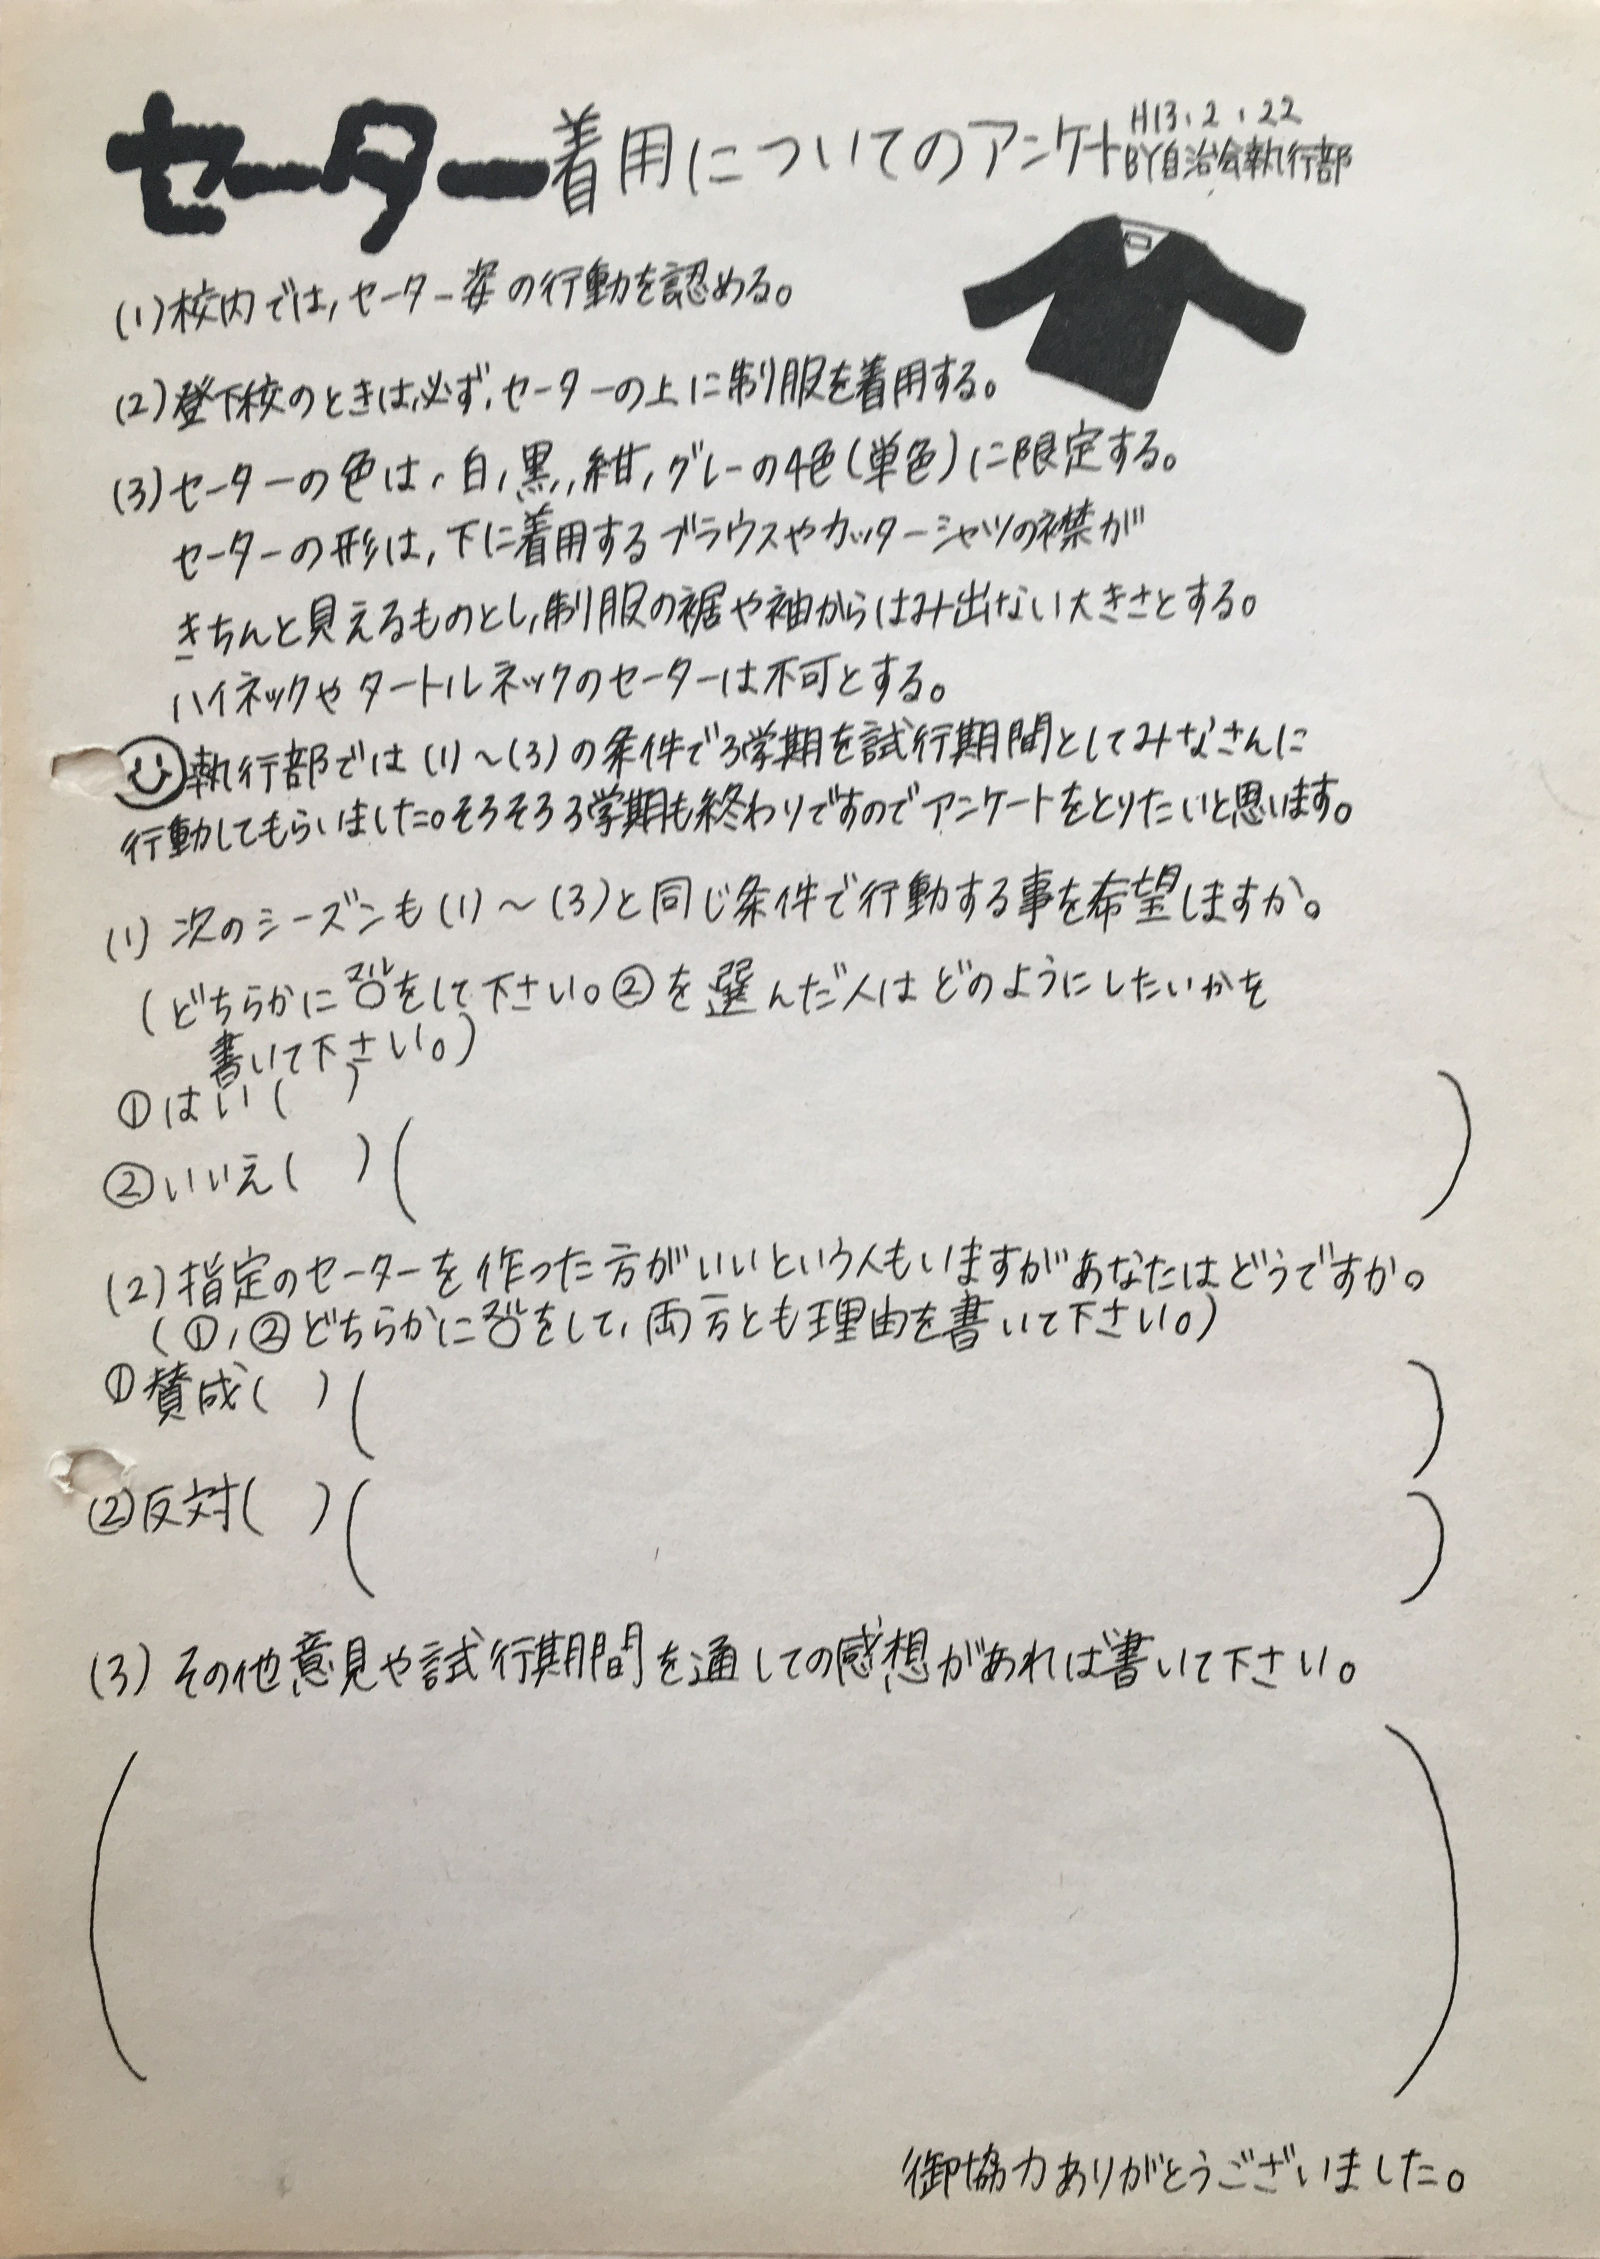 セーター着用についてのアンケート
H13.2.22
BY自治会執行部
(1)校内では,セーター姿の行動を認める。
(2)登下校のときは,必ず,セーターの上に制服を着用する。
(3)セーターの色は,白,黒,紺,グレーの4色(単色)に限定する。
セーターの形は,下に着用するブラウスやカッターシャツの襟が
きちんと見えるものとし,制服の裾や袖からはみ出ない大きさとする。
ハイネックやタートルネックのセーターは不可とする。
執行部では(1)〜(3)の条件で3学期を試行期間としてみなさんに
行動してもらいました。そろそろ3学期も終わりですのでアンケートをとりたいと思います。
(1)次のシーズンも(1)〜(3)と同じ条件で行動する事を希望しますか。
(どちらかに○をして下さい。②を選んだ人はどのようにしたいかを
書いて下さい。)
①はい( )
②いいえ( ) ( )
(2)指定のセーターを作った方がいいという人もいますがあなたはどうですか。
(①,②どちらかに○をして,両方とも理由を書いて下さい。)
①賛成( ) ( )
②反対( ) ( )
(3)その他意見や試行期間を通しての感想があれば書いて下さい。
( )
御協力ありがとうございました。